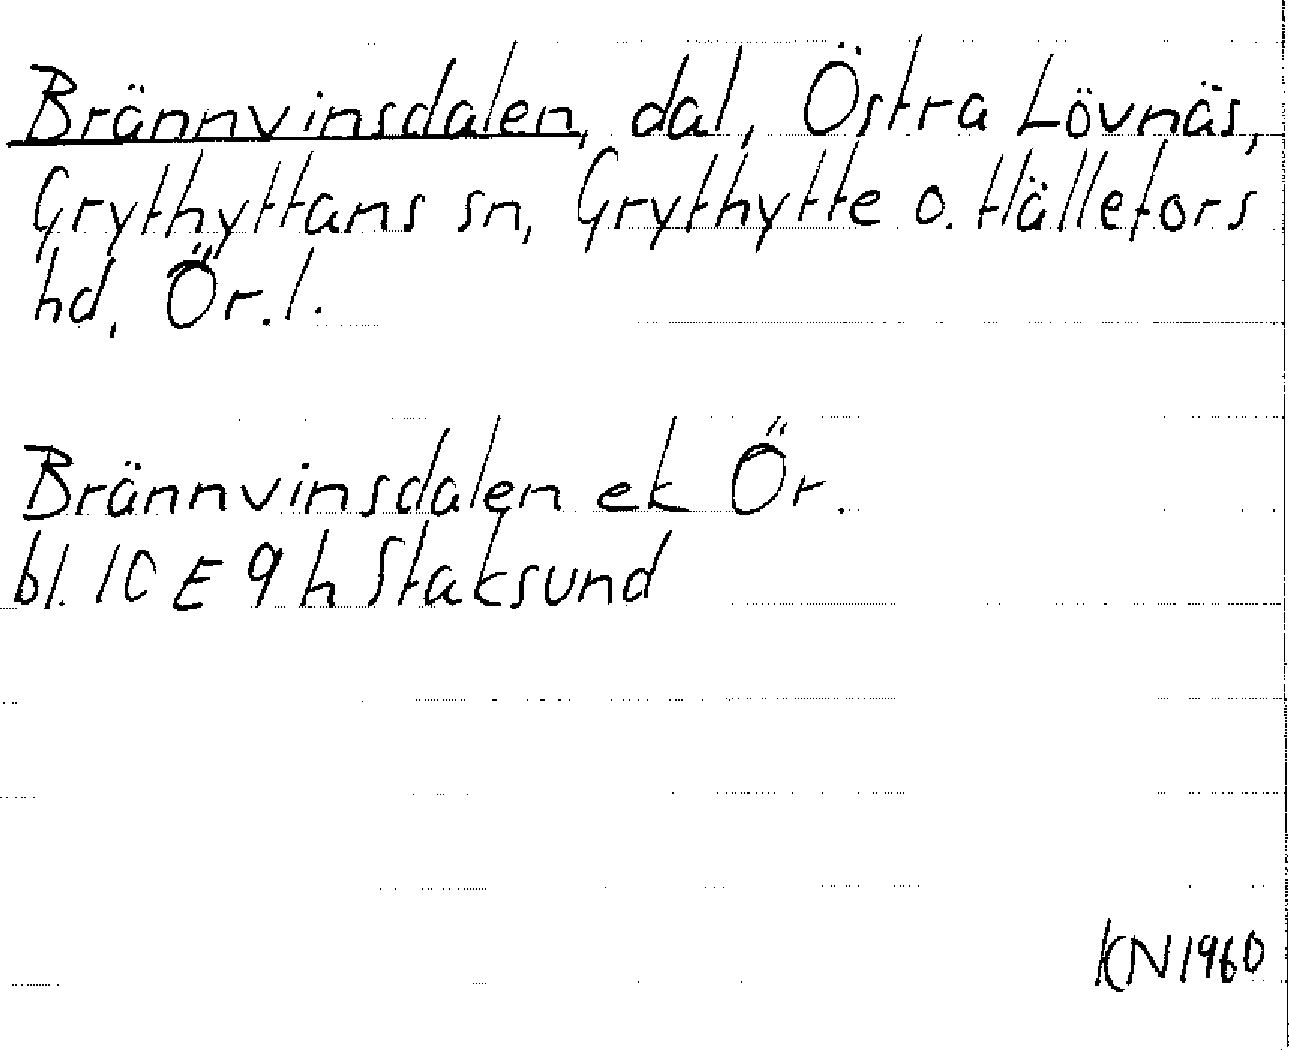 Brännvinsdalen, dal, Östra Lövnäs,
Grythyttans sn, Grythytte o. Hällefors
hd, Ör. l.
Brännvinsdalen ek Ör.
bl. 10 E 9 h Staksund
KN 1960